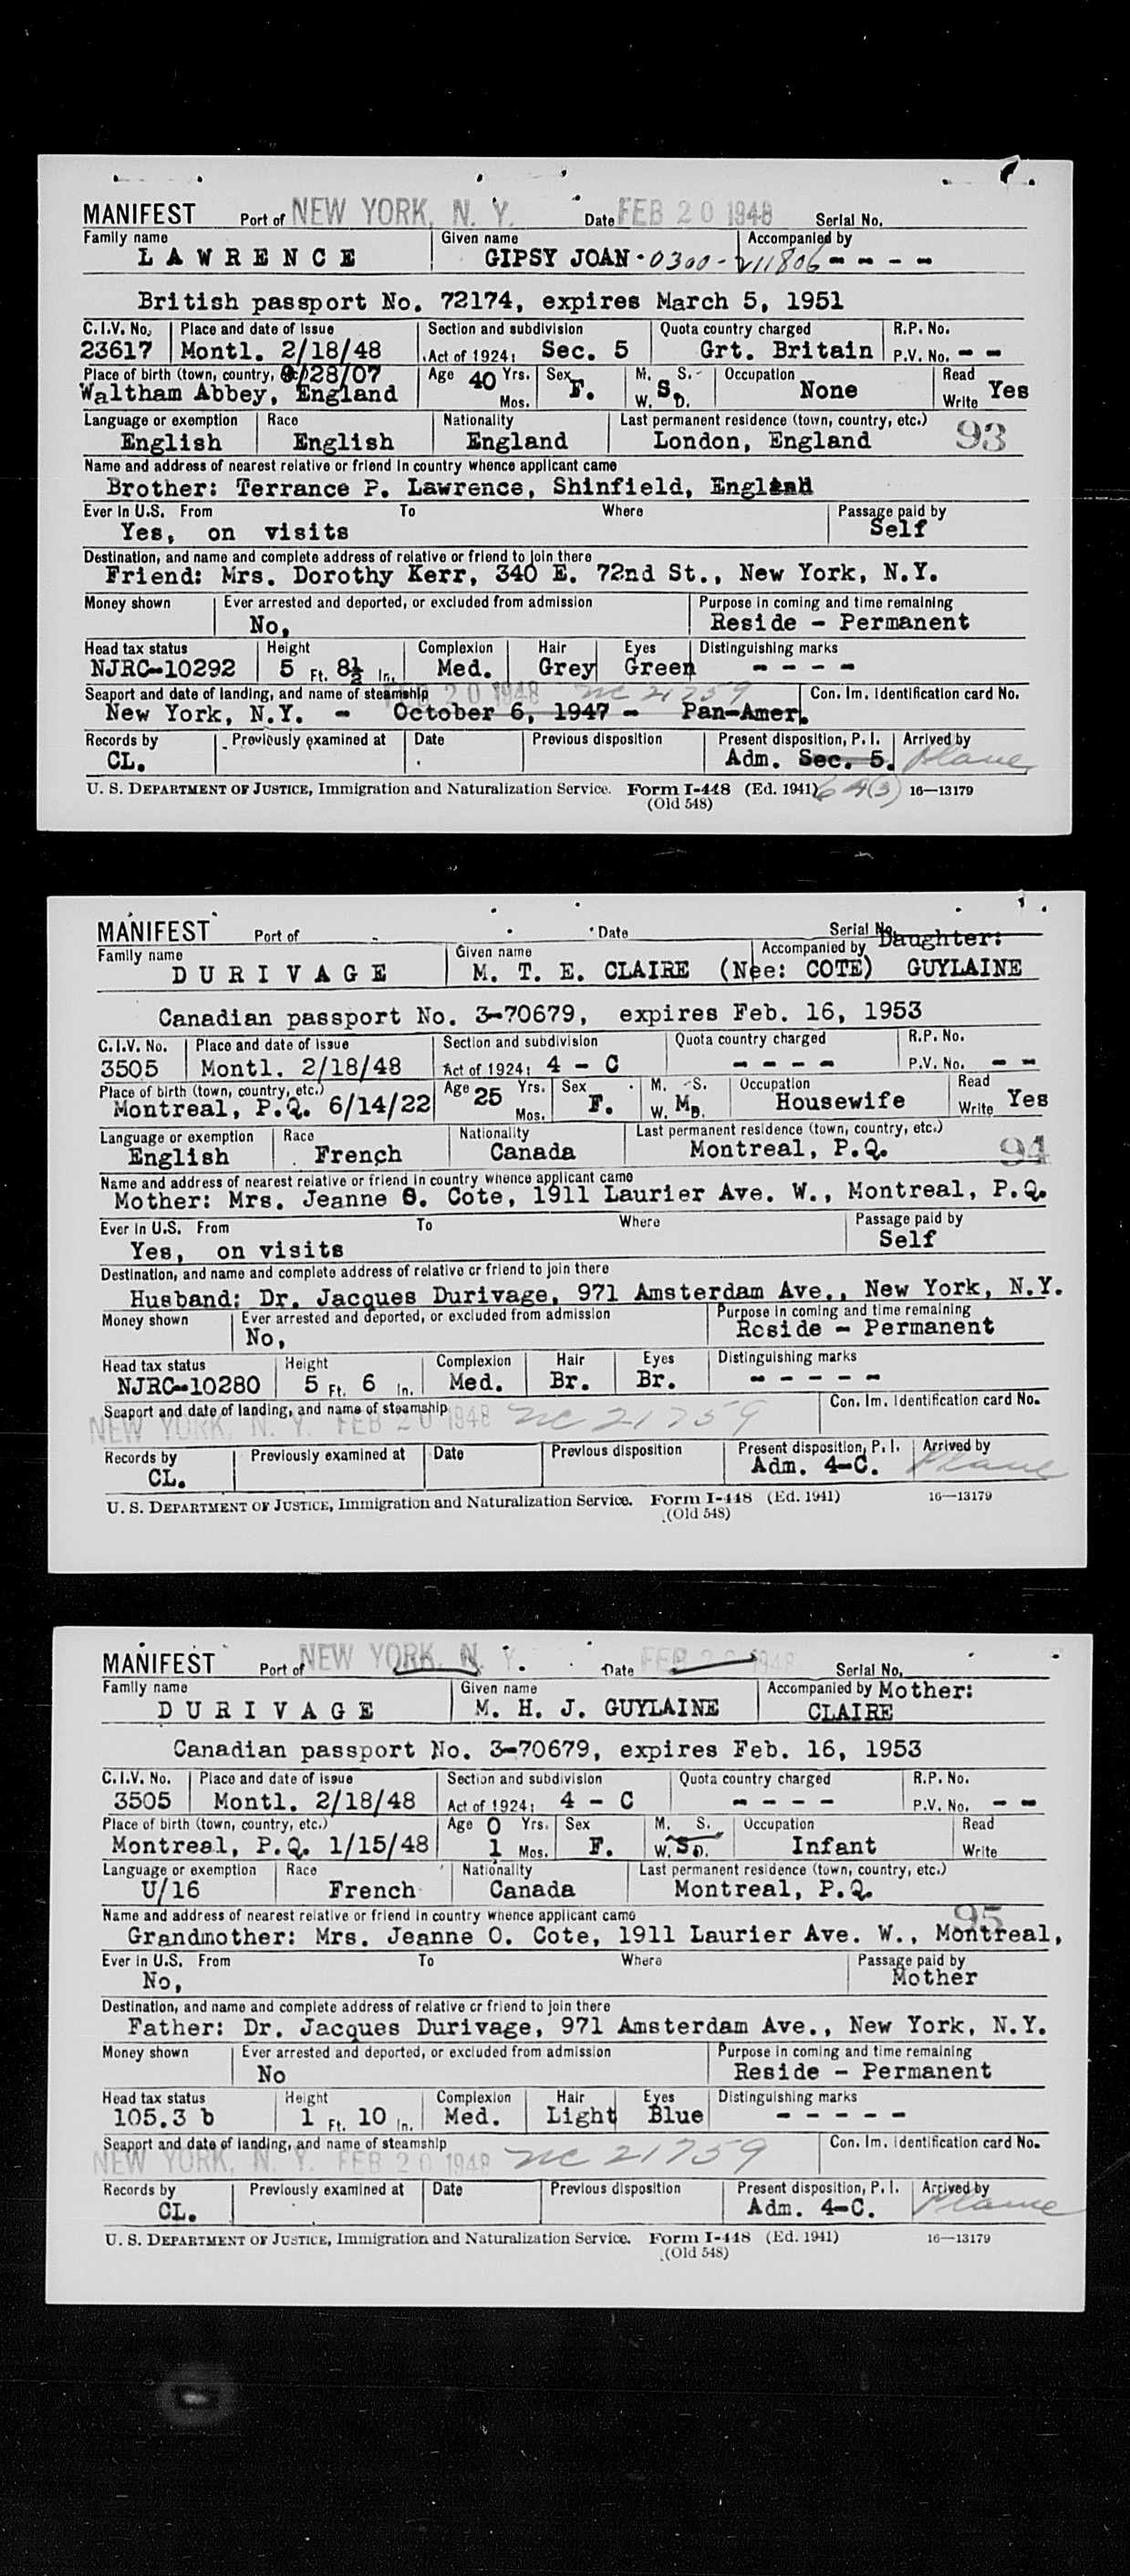 MANIFEST Port of NEW YORK, N. Y. Date FEB 20 1948 Serial No.
Family name Given name Accompanied by
LAWRENCE GIPSY JOAN - 0300 - 211806 - - - -
British passport No. 72174, expires March 5, 1951
C.I.V. No. Place and date of issue Section and subdivision Quota country charged R.P. No.
23617 Montl. 2/18/48 Act of 1924: Sec. 5 Grt. Britain P.V. No. - -
Place of birth (town, country, /28/07 Age 40 Yrs. Mos. Sex F. M. S. W. D. S Occupation None Read Write Yes
Waltham Abbey, England
Language or exemption Race Nationality Last permanent residence (town, country, etc.)
English English England London, England 93
Name and address of nearest relative or friend in country whence applicant came
Brother: Terrance P. Lawrence, Shinfield, England
Ever in U.S. From To Where Passage paid by
Yes, on visits Self
Destination, and name and complete address of relative or friend to join there
Friend: Mrs. Dorothy Kerr, 340 E. 72nd St., New York, N.Y.
Money shown Ever arrested and deported, or excluded from admission Purpose in coming and time remaining
No, Reside - Permanent
Head tax status Height Complexion Hair Eyes Distinguishing marks
NJRC-10292 5 Ft. 8½ In. Med. Grey Green - - - -
Seaport and date of landing, and name of steamship FEB 20 1948 NC 21759 Con. Im. Identification card No.
New York, N.Y. - October 6, 1947 - Pan-Amer.
Records by Previously examined at Date Previous disposition Present disposition, P. I. Arrived by
CL. Adm. Sec. 5. Plane
U. S. DEPARTMENT OF JUSTICE, Immigration and Naturalization Service. Form I-448 (Ed. 1941) 6 4(3) 16—13179
(Old 548)
MANIFEST Port of Date Serial No.
Family name Given name Accompanied by Daughter:
DURIVAGE M. T. E. CLAIRE (Nee: COTE) GUYLAINE
Canadian passport No. 3-70679, expires Feb. 16, 1953
C.I.V. No. Place and date of issue Section and subdivision Quota country charged R.P. No.
3505 Montl. 2/18/48 Act of 1924: 4 - C - - - - P.V. No. - -
Place of birth (town, country, etc.) Age 25 Yrs. Mos. Sex F. M. S. W. D. M Occupation Housewife Read Write Yes
Montreal, P.Q. 6/14/22
Language or exemption Race Nationality Last permanent residence (town, country, etc.)
English French Canada Montreal, P.Q. 94
Name and address of nearest relative or friend in country whence applicant came
Mother: Mrs. Jeanne O. Cote, 1911 Laurier Ave. W., Montreal, P.Q.
Ever in U.S. From To Where Passage paid by
Yes, on visits Self
Destination, and name and complete address of relative or friend to join there
Husband: Dr. Jacques Durivage, 971 Amsterdam Ave., New York, N.Y.
Money shown Ever arrested and deported, or excluded from admission Purpose in coming and time remaining
No, Reside - Permanent
Head tax status Height Complexion Hair Eyes Distinguishing marks
NJRC-10280 5 Ft. 6 In. Med. Br. Br. - - - - -
Seaport and date of landing, and name of steamship Con. Im. Identification card No.
NEW YORK, N. Y. FEB 20 1948 NC 21759
Records by Previously examined at Date Previous disposition Present disposition, P. I. Arrived by
CL. Adm. 4-C. Plane
U. S. DEPARTMENT OF JUSTICE, Immigration and Naturalization Service. Form I-448 (Ed. 1941) 16—13179
(Old 548)
MANIFEST Port of NEW YORK, N. Y. Date FEB 20 1948 Serial No.
Family name Given name Accompanied by Mother:
DURIVAGE M. H. J. GUYLAINE CLAIRE
Canadian passport No. 3-70679, expires Feb. 16, 1953
C.I.V. No. Place and date of issue Section and subdivision Quota country charged R.P. No.
3505 Montl. 2/18/48 Act of 1924: 4 - C - - - - P.V. No. - -
Place of birth (town, country, etc.) Age 0 Yrs. 1 Mos. Sex F. M. S. W. D. S Occupation Infant Read Write
Montreal, P.Q. 1/15/48
Language or exemption Race Nationality Last permanent residence (town, country, etc.)
U/16 French Canada Montreal, P.Q.
Name and address of nearest relative or friend in country whence applicant came 95
Grandmother: Mrs. Jeanne O. Cote, 1911 Laurier Ave. W., Montreal,
Ever in U.S. From To Where Passage paid by
No, Mother
Destination, and name and complete address of relative or friend to join there
Father: Dr. Jacques Durivage, 971 Amsterdam Ave., New York, N.Y.
Money shown Ever arrested and deported, or excluded from admission Purpose in coming and time remaining
No Reside - Permanent
Head tax status Height Complexion Hair Eyes Distinguishing marks
105.3 b 1 Ft. 10 In. Med. Light Blue - - - - -
Seaport and date of landing, and name of steamship Con. Im. Identification card No.
NEW YORK, N. Y. FEB 20 1948 NC 21759
Records by Previously examined at Date Previous disposition Present disposition, P. I. Arrived by
CL. Adm. 4-C. Plane
U. S. DEPARTMENT OF JUSTICE, Immigration and Naturalization Service. Form I-448 (Ed. 1941) 16—13179
(Old 548)